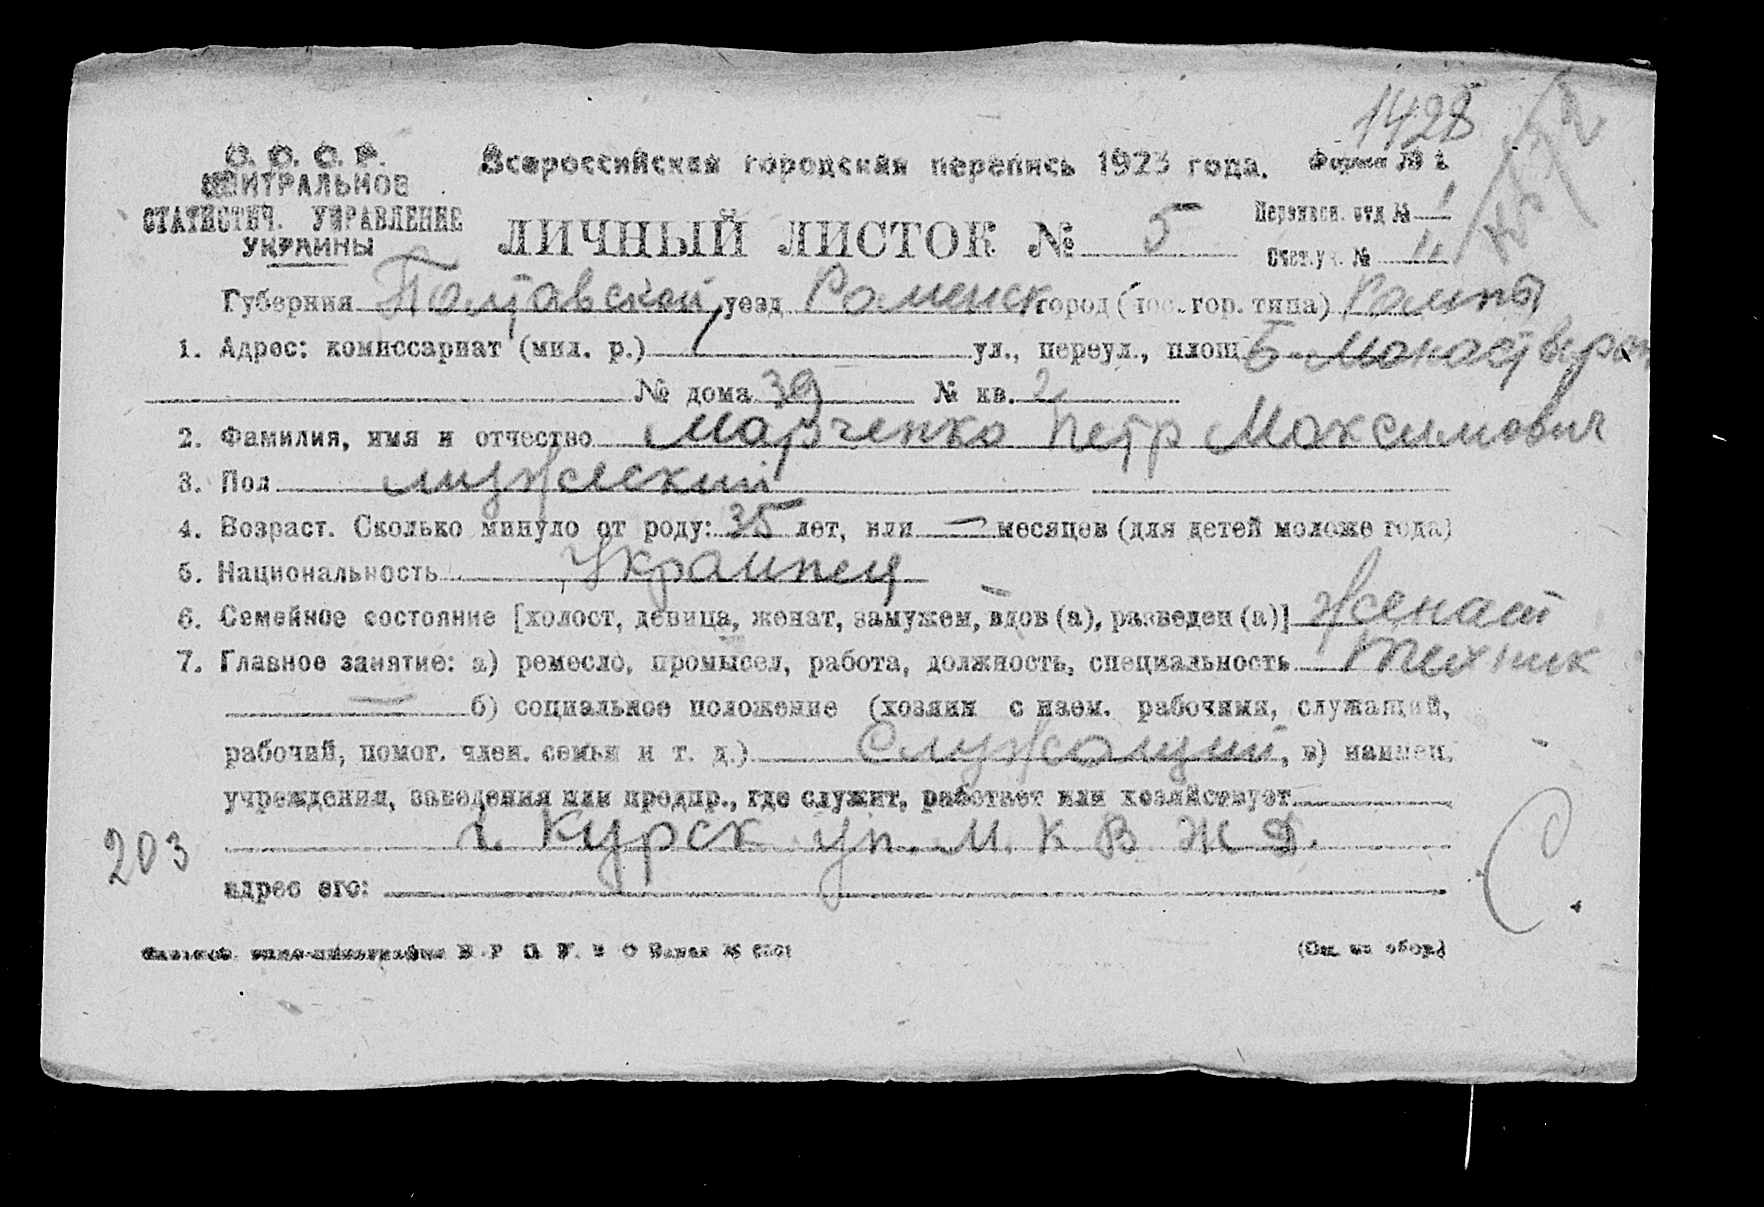 1428
С. С. С. Р.
ЦЕНТРАЛЬНОЕ
СТАТИСТИЧ. УПРАВЛЕНИЕ
УКРАИНЫ
Всероссийская городская перепись 1923 года. Форма № 1
ЛИЧНЫЙ ЛИСТОК № 5
Переписн. отд № 1
Счет.уч. № 11
Губерния Полтавской уезд Роменск город (пос. гор. типа) Ромны
1. Адрес: комиссариат (мил. р.) ул., переул., площ. Б Монастырск
№ дома 39 № кв. 2
2. Фамилия, имя и отчество Марченко Петр Максимович
3. Пол мужеский
4. Возраст. Сколько минуло от роду: 35 лет, или — месяцев (для детей моложе года)
5. Национальность Украинец
6. Семейное состояние [холост, девица, женат, замужем, вдов (а), разведен (а)] женат
7. Главное занятие: а) ремесло, промысел, работа, должность, специальность техник
— б) социальное положение (хозяин с наем. рабочими, служащий,
рабочий, помог. член. семьи и т. д.) Служащий, в) наимен.
учреждения, заведения или предпр., где служит, работает или хозяйствует
г. Курск уп. М. К В Ж Д.
203
адрес его:
(См. на обор.)